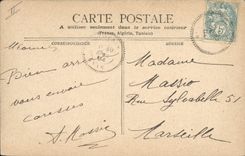 CARTE POSTALE
A utiliser seulement dans le service intérieur
(France, Algérie, Tunisie)
CORRESPONDANCE
ADRESSE
Bien
vous envoie
caresses
Madame
Massio
Rue Sylvabelle 51
Marseille